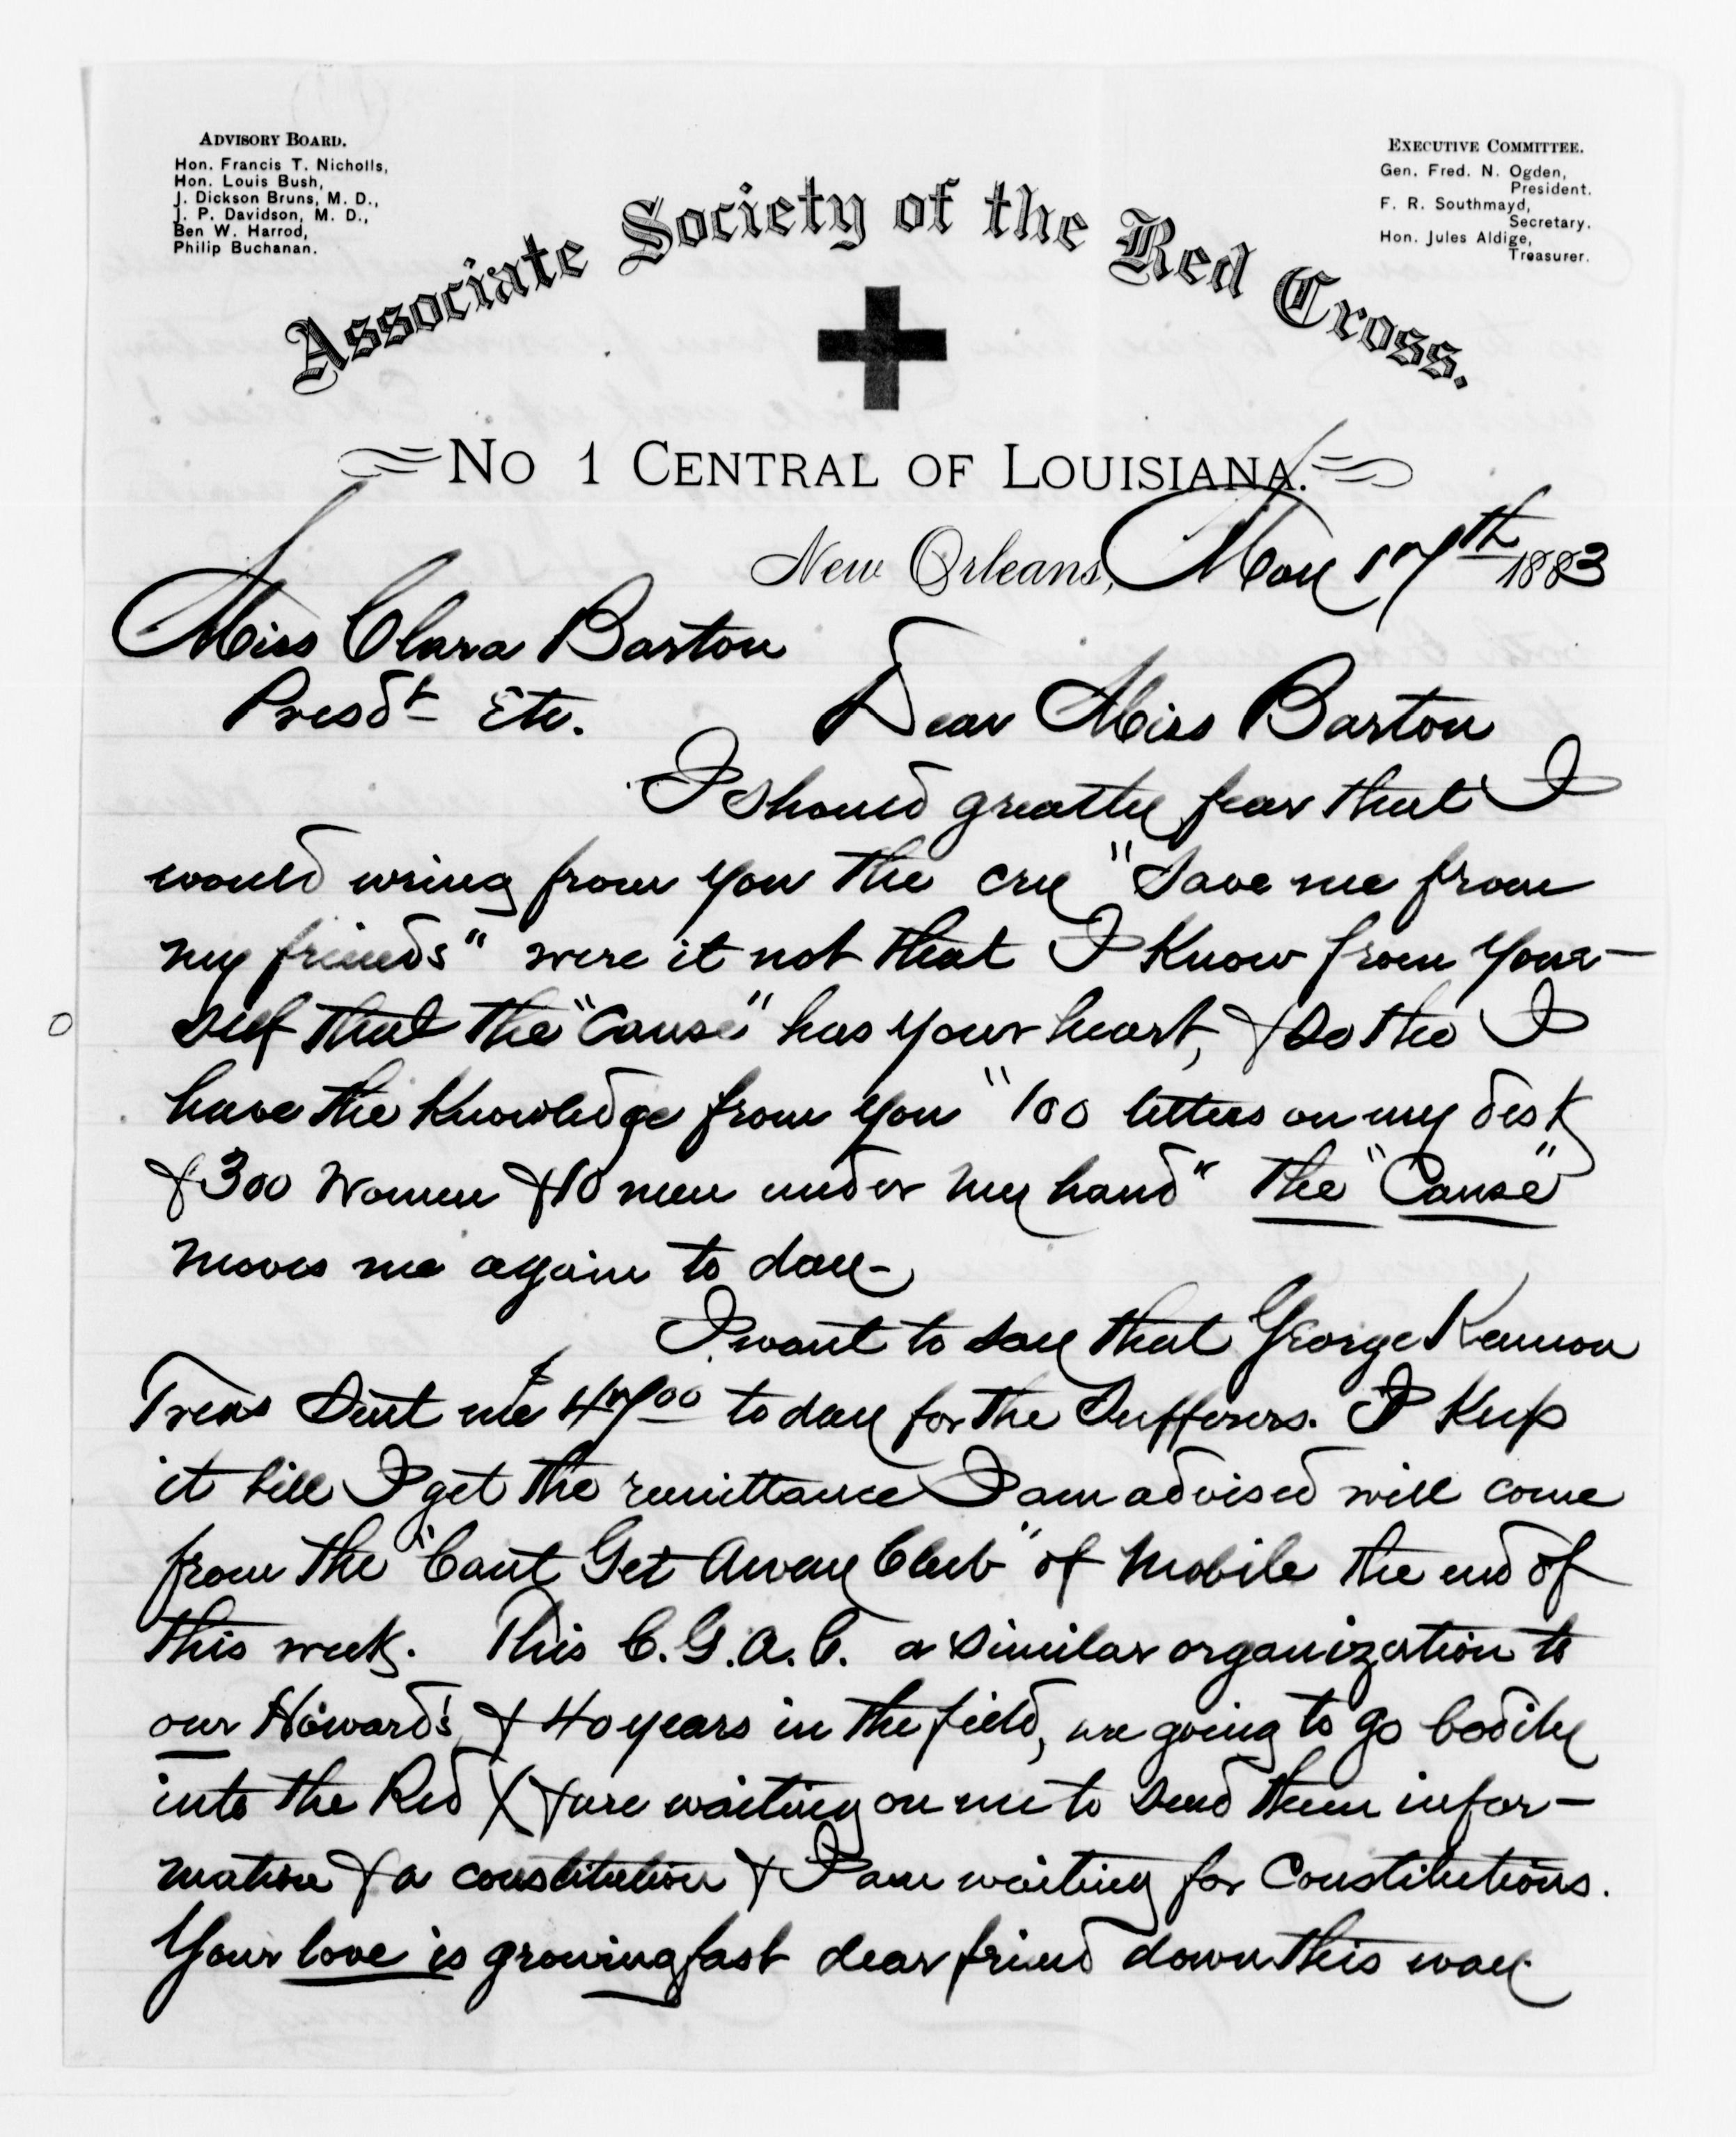 ADVISORY BOARD.
Hon. Francis T. Nicholls,
Hon. Louis Bush,
J. Dickson Bruns, M. D.,
J. P. Davidson, M. D.,
Ben W. Harrod,
Philip Buchanan.
EXECUTIVE COMMITTEE.
Gen. Fred. N. Ogden,
President.
F. R. Southmayd,
Secretary.
Hon. Jules Aldige,
Treasurer.
Associate Society of the Red Cross.
No 1 CENTRAL OF LOUISIANA.
New Orleans, May 17th 1883
Miss Clara Barton
Presdt Etc.
Dear Miss Barton
I should greatly fear that I
would wring from you the cry "Save me from
my friends" were it not that I Know from your-
self that the "Cause" has your heart, & So tho I
have the Knowledge from you "100 letters on my desk
& 300 Women & 10 men under my hand" the "Cause"
moves me again to day-
I want to say that George
Treas Sent me $47.00 to day for the Sufferers. I Keep
it till I get the remittance I am advised will come
from the "Cant Get Away Club" of Mobile the end of
this week. This C.G.A.C. a similar organization to
our Howard's & 40 years in the field, are going to go bodily
into the Red X & are waiting on me to Send them infor-
mation & a constitution & I am waiting for Constitutions.
Your love is growing fast dear friend down this way.